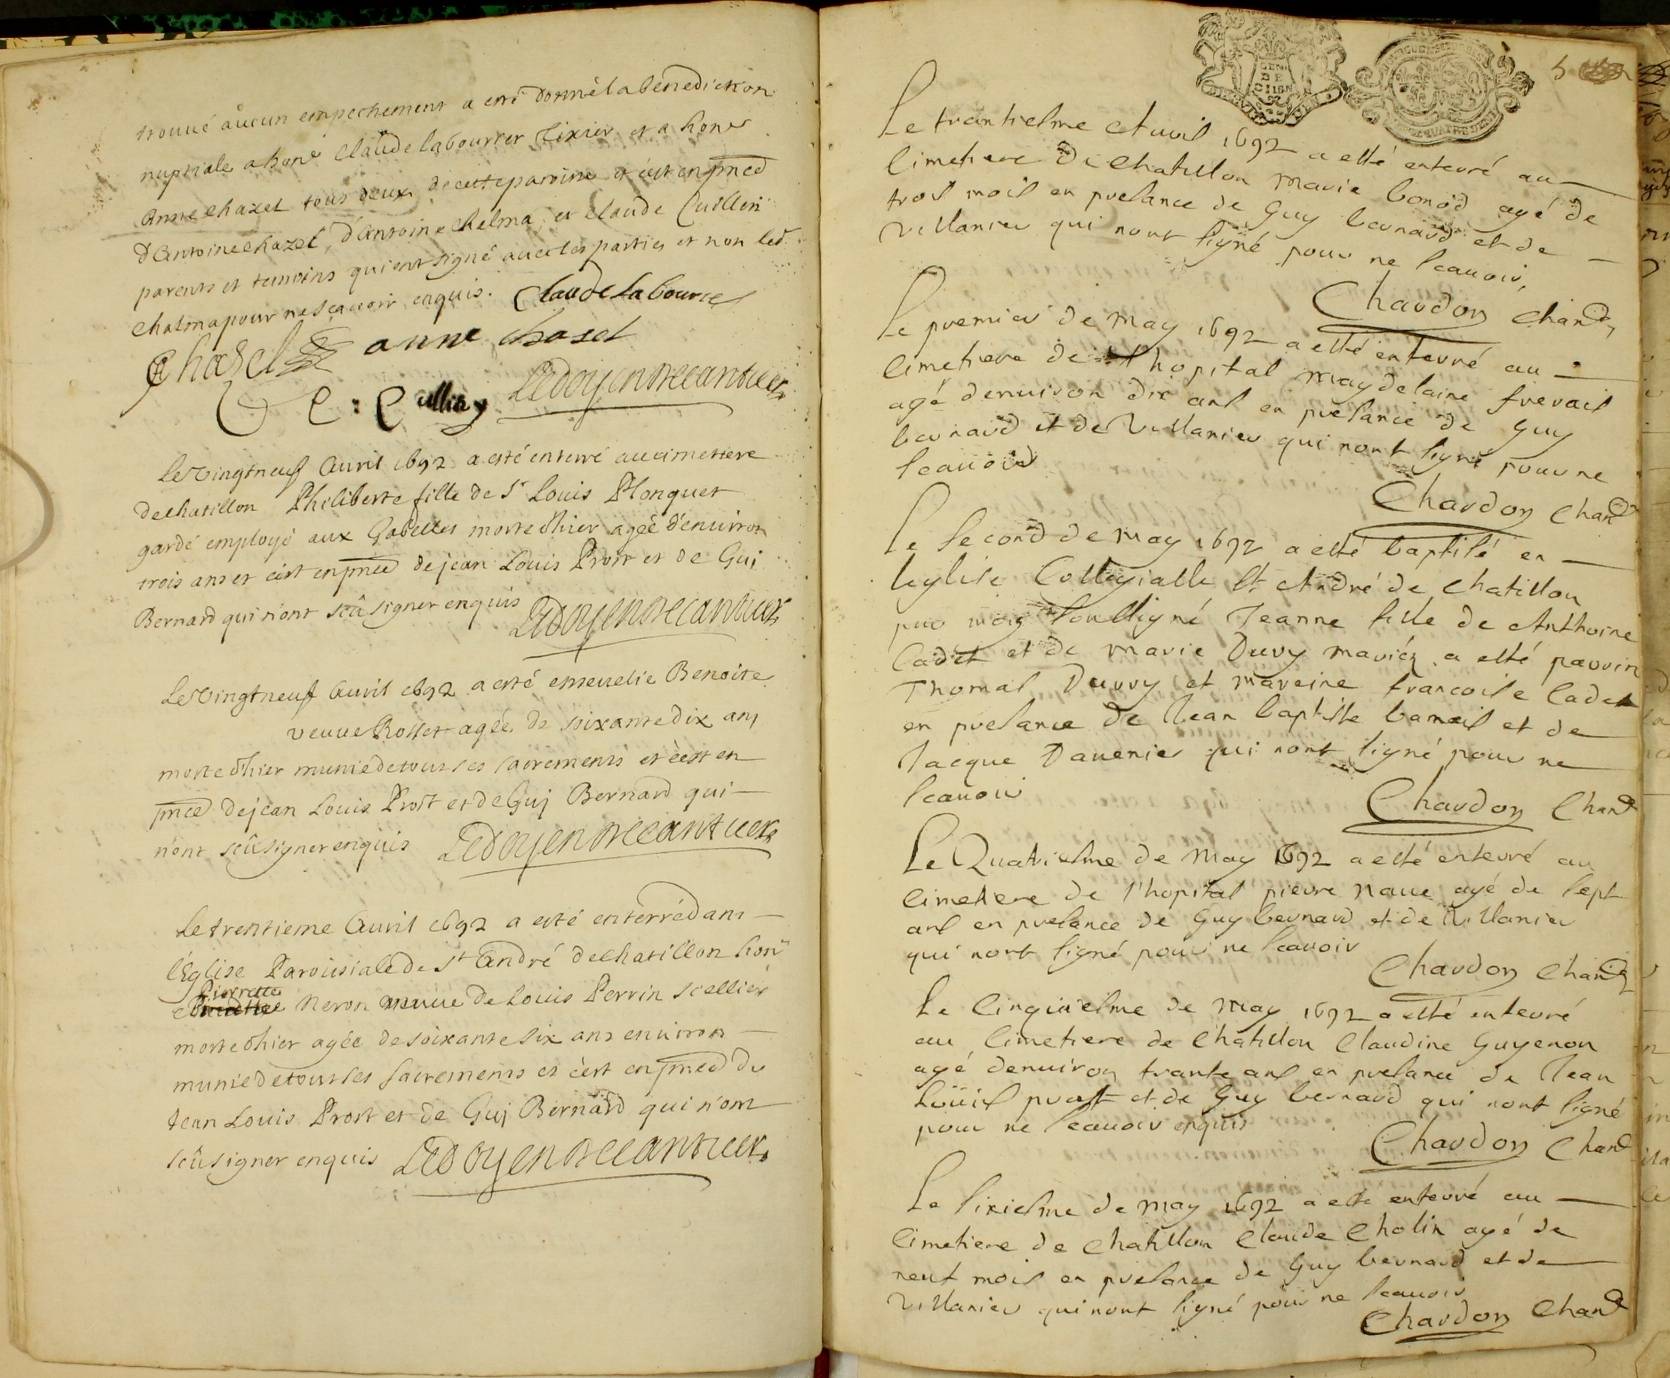 trouué aucun empechement a eté donné la benediction
nuptiale a honé Claude labourier Tixier et a hone
Anne Chazel tous deux de cette paroisse et c'est en pnced
d'Antoine Chazel, d'Antoine Chelma et Claude Cuillin
parents et temoins qui ont signé auec les parties et non led.
Chalma pour ne sçauoir enquis. Claude labource
Chazel anne chasel
C: Cullin Ledoyen decantuer
Le vingtneuf Auril 1692 a esté enterré au cimettiere
de chatillon Philiberte fille de Sr Louis Plonquet
gardé employé aux Gabelles morte d'hier agée d'enuiron
trois ans et c'est en pnce de jean Louis Prost et de Gui
Bernard qui n'ont scû signer enquis Ledoyen decantuer
Le vingtneuf Auril 1692 a esté enseuelie Benoite
veuue Rosset agée de soixante dix ans
morte d'hier munie de tous ses sacrements et c'est en
pnce de jean Louis Prost et de Guj Bernard qui
n'ont scû signer enquis Ledoyen decantuer
Le trentieme Auril 1692 a esté enterré dans
l'Église Paroissiale de St André de chatillon hone
Pierrette
Neron veuue de Louis Perrin scellier
morte d'hier agée de soixante six ans enuiron
munie de tous ses sacrements et c'est en pnced de
Jean Louis Prost et de Guj Bernard qui n'ont
scû signer enquis Ledoyen decantuer
5
Le trantiesme Auuil 1692 a esté enterré au
Cimetiere de Chatillon Marie bonod agé de
trois mois en presance de Guy bernard et de
Villanier qui n'ont signé pour ne scauoir,
Chardon Chane
Le premier de may 1692 a esté enterré au
Cimetiere de l'hopital Maydelaine freuail
agé denuiron dix ans en presance de Guy
bernard et de Villanier qui n'ont signé pour ne
scauoir
Chardon Chane
Le Second de may 1692 a esté baptisé en
leglise Collegialle St André de Chatillon
par moy soussigné Jeanne fille de Anthoine
Cadet et de Marie Dury mariéz a esté parrin
Thomas Durry et mareine francoise Cadet
en presance de Jean baptiste bameil et de
Jacque Dauenier qui n'ont signé pour ne
scauoir
Chardon Chane
Le Quatriesme de May 1692 a esté enterré au
Cimetiere de l'hopital pierre naue agé de sept
ans en presance de Guy bernard et de Villanier
qui n'ont signé pour ne scauoir
Chardon Chane
Le Cinquiesme de May 1692 a esté enterré
au Cimetiere de Chatillon Claudine Guyenon
agé denuiron trante ans en presance de Jean
Loüis prost et de Guy bernard qui n'ont signé
pour ne scauoir enquis
Chardon Chane
Le Sixiesme de May 1692 a esté enterré au
Cimetiere de Chatillon Claude Cholin agé de
neuf mois en presance de Guy bernard et de
Villanier qui n'ont signé pour ne scauoir
Chardon Chane